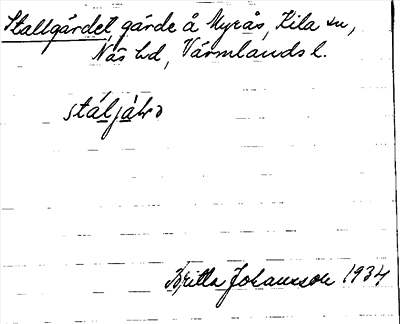 Stallgärdet, gärde å Myrås, Kila sn,
Näs hd, Värmlands l.
Britta Johansson 1934